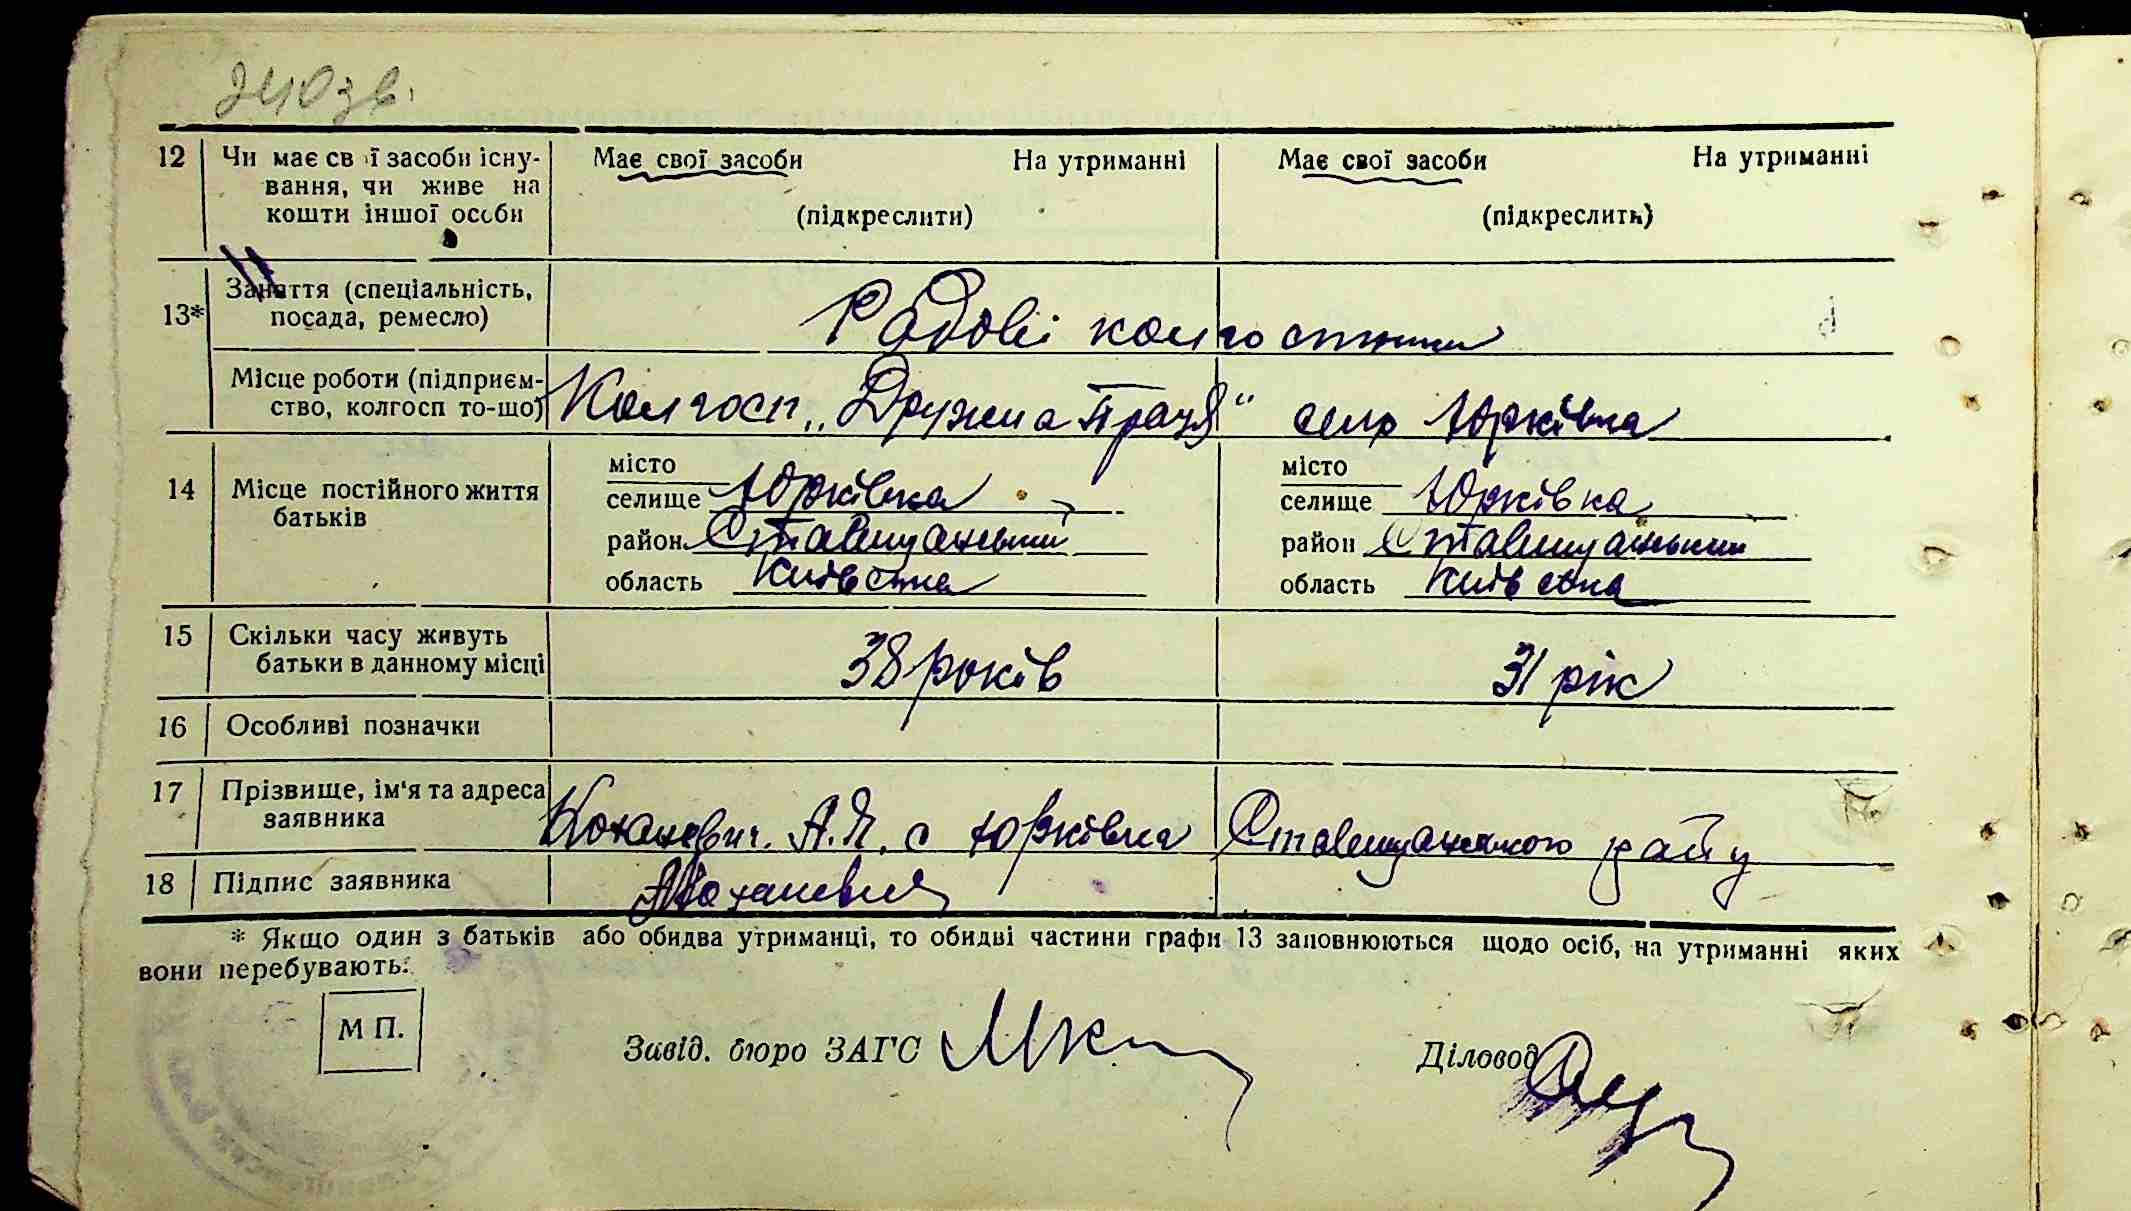 240 зв.
12 Чи має св ї засоби існу- Має свої засоби На утриманні Має свої засоби На утриманні
вання, чи живе на
кошти іншої особи (підкреслити) (підкреслить)
Заняття (спеціальність,
13* посада, ремесло) Рядові колгоспники
Місце роботи (підприєм-
ство, колгосп то-що) Колгосп „Дружна праця" село Юрківка
місто місто
14 Місце постійного життя селище Юрківка селище Юрківка
батьків район Ставищанський район Ставищанський
область Київська область Київська
15 Скільки часу живуть
батьки в данному місці 38 років 31 рік
16 Особливі позначки
17 Прізвище, ім'я та адреса
заявника Коханевич. А. Я. с Юрківка Ставищанського райу
18 Підпис заявника АКоханевич
* Якщо один з батьків або обидва утриманці, то обидві частини графи 13 заповнюються щодо осіб, на утриманні яких
вони перебувають.
М П. Завід. бюро ЗАГС Діловод